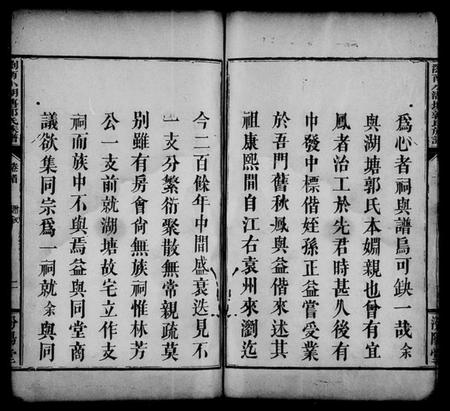 為心者祠與譜烏可缺一哉余
與湖塘郭氏本姻親也曾有宜
鳳者治工於先君時甚久後有
中發中標偕姪孫正益嘗受業
於吾門舊秋鳳與益偕來述其
祖康熙間自江右袁州來瀏迄
今二百餘年中間盛衰迭見不
一支分繁衍聚散無常親疏莫
別雖有房會尙無族祠惟林芳
公一支前就湖塘故宅立作支
祠而族中不與焉益與同堂商
議欲集同宗為一祠就余與同
卷首